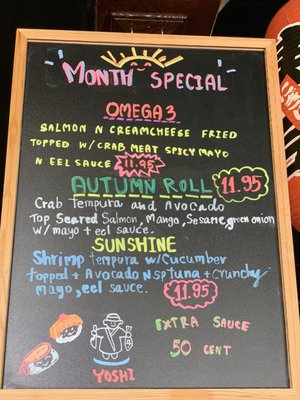 MONTH SPECIAL
OMEGA 3
SALMON N CREAMCHEESE FRIED
TOPPED W/CRAB MEAT SPICY MAYO
N EEL SAUCE 11.95
AUTUMN ROLL 11.95
Crab tempura and Avocado
Top Seared Salmon, Mango, Sesame, green onion
w/mayo + eel sauce.
SUNSHINE
Shrimp tempura w/Cucumber
topped + Avocado N sp tuna + crunchy
mayo, eel sauce. 11.95
EXTRA SAUCE
50 CENT
YOSHI